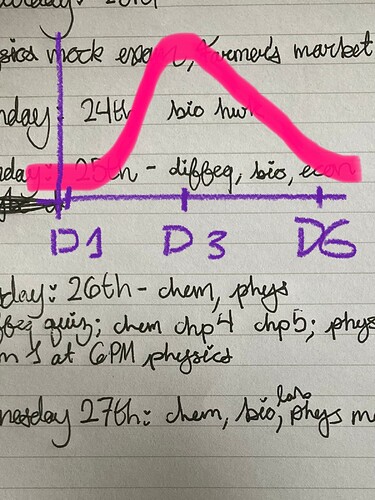 sics mock exam, farmer's market
nday: 24th bio hw
nday: 25th - diffeq, bio, econ
D1 D3 D6
day: 26th - chem, phys
ffeq quiz; chem chp4 chp5; phys
m 1 at 6PM physics
nesday 27th: chem, bio, phys m